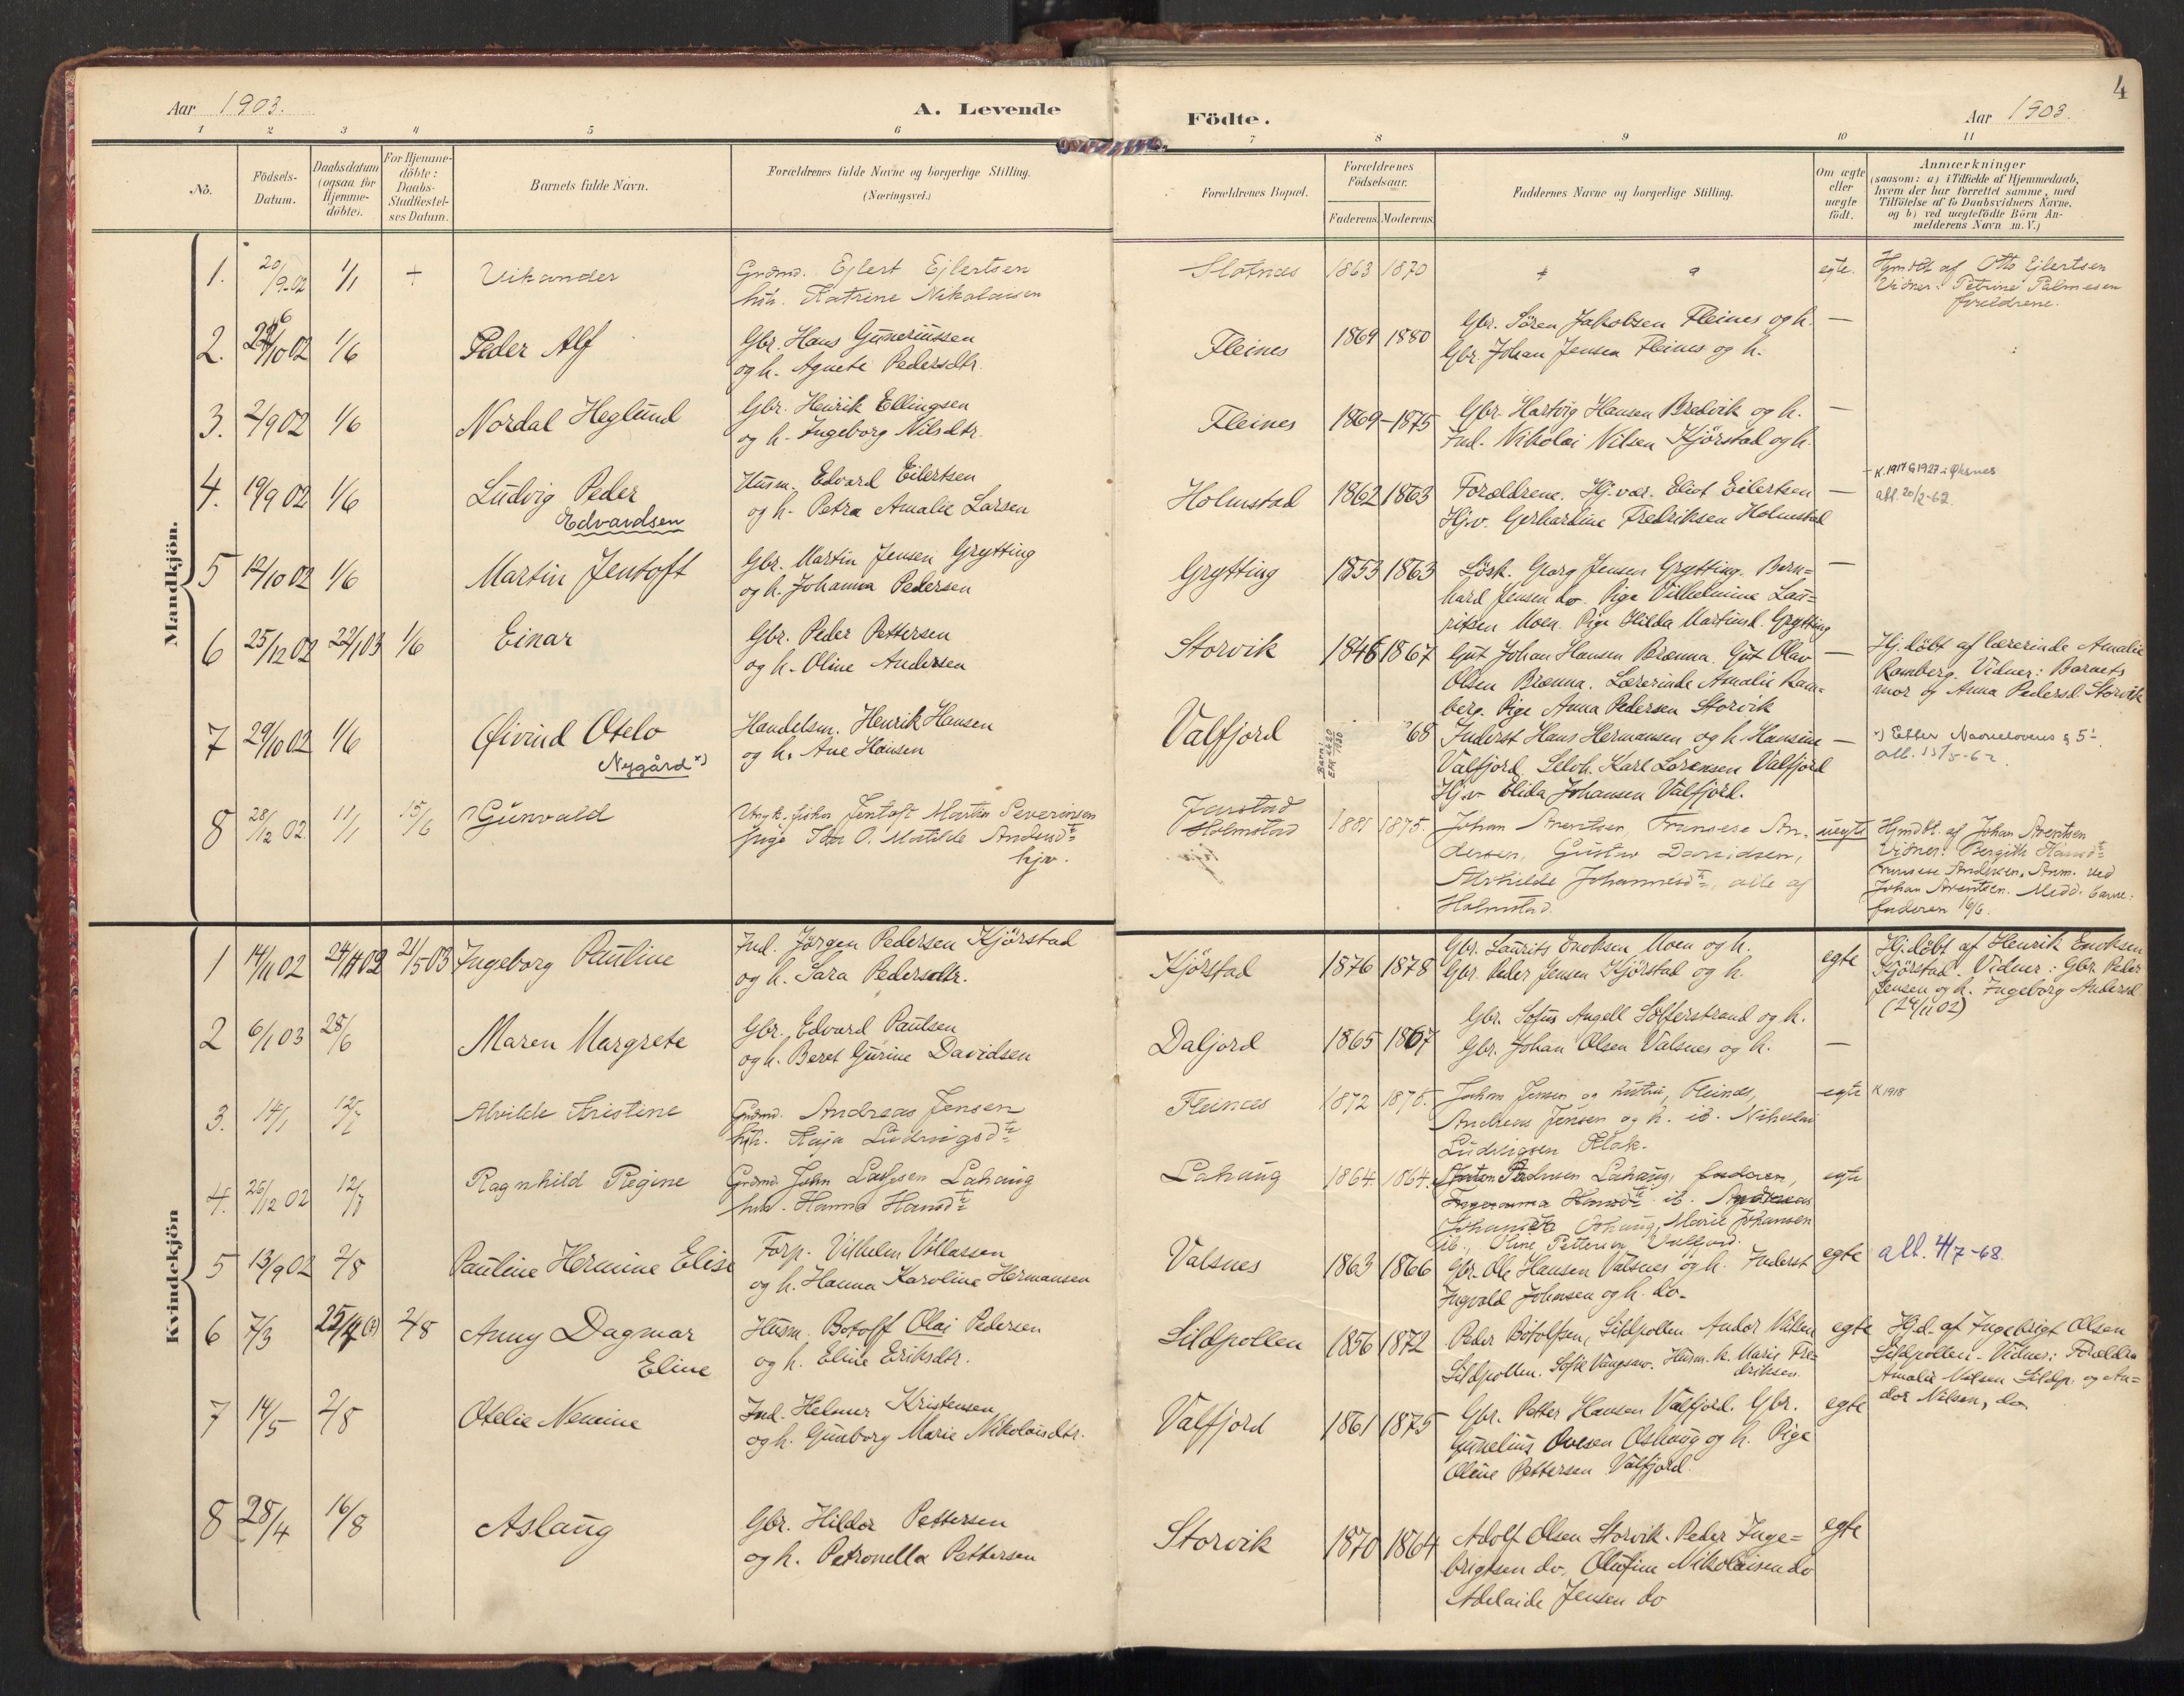 4
Aar 1903.
A. Levende
Födte.
Aar 1903.
1 2 3 4 5 6 7 8 9 10 11
No.
Födsels-
Datum.
Daabsdatum
(ogsaa for
Hjemme-
döbte).
For Hjemme-
döbte:
Daabs-
Stadfæstel-
ses Datum.
Barnets fulde Navn.
Forældrenes fulde Navne og borgerlige Stilling.
(Næringsvei.)
Forældrenes Bopæl.
Forældrenes
Födselsaar.
Faderens. Moderens.
Faddernes Navne og borgerlige Stilling.
Om ægte
eller
uægte
födt.
Anmærkninger
(saasom: a) i Tilfælde af Hjemmedaab,
hvem der har forrettet samme, med
Tilföielse af to Daabsvidners Navne,
og b) ved uegtefödte Börn An-
melderens Navn m. V.)
Mandkjön.
1. 20/9.02 1/1 + Vikander
Grdmd. Ejlert Ejlertsen
hstr. Katrine Nikolaisen
Slotnes 1863 1870
egte.
Hjmdbt af Otto Ejlertsen
Vidner: Petrine Palmesen
forældrene.
2. 10 02 1/6 Peder Alf
Gbr. Hans Guneriussen
og h. Agnete Pedersdtr.
Fleines 1869 1880
Gbr. Sören Jakobsen Fleines og h. —
Gbr. Johan Jensen Fleines og h.
3. 2/9 02 1/6 Nordal Heglund
Gbr. Henrik Ellingsen
og h. Ingeborg Nilsdtr.
Fleines 1869-1875
Gbr. Hartvig Hansen Bredvik og h. —
Ind. Nikolai Nilsen Kjörstad og h.
4. 19/9 02 1/6 Ludvig Peder
Edvardsen
Husm. Edvard Eilertsen
og h. Petra Amalie Larsen
Holmstad 1862 1863
Forældrene. Hj.vær. Eliot Eilertsen —
Hj.v. Gerhardine Fredriksen Holmstad
K. 1917 G 1927 i Øksnes
abl. 20/2-62.
5 12/10 02 1/6 Martin Jentoft
Gbr. Martin Jensen Grytting
og h. Johanna Pedersen
Grytting 1853 1863
Lösk. Georg Jensen Grytting. Bern= —
hard Jensen do. Pige Vilhelmine Lau=
ritsen Moen. Pige Hilda Martinsd. Grytting
6 25/12 02 22/1 03 1/6 Einar
Gbr. Peder Pettersen
og h. Oline Andersen
Storvik 1846 1867
Gut Johan Hansen Brænna. Gut Olav —
Olsen Brænna. Lærerinde Amalie Ram=
berg. Pige Anna Pedersen Storvik
Hj.döbt af lærerinde Amalie
Ramberg. Vidner: Barnets
mor og Anna Pedersd. Storvik
7 29/10 02 1/6 Øivind Otelo
Nygård *)
Handelsm. Henrik Hansen
og h. Ane Hansen
Valfjord 68
Inderst Hans Hermansen og h. Hansine —
Valfjord. Selvh. Karl Lorensen Valfjord
Hj.v. Elida Johansen Valfjord.
*) Etter Navnelovens § 5.
8 28/12 02. 11/1 15/6 Gunvald
Ungk. fisker Jentoft Martin Severinsen
pige Ida O. Matilde Andersdtr
hjv.
Jennstad
Holmstad 1881 1875.
Johan Arentsen, Fransese An-
dersen, Gustav Davidsen,
Alvhilde Johannesdtr, alle af
Holmstad.
uegte
Hjmdbt. af Johan Arentsen
Vidner: Bergith Hansdtr
Fransese Andersen. Anm. ved
Johan Arentsen. Medd. barne-
faderen 16/6.
Kvindekjön
1 14/11 02 24/11 02 21/5 03 Ingeborg Pauline
Ind. Jörgen Pedersen Kjörstad
og h. Sara Pedersdtr.
Kjörstad 1876 1878
Gbr. Laurits Enoksen Moen og h.
Gbr. Peder Jensen Kjörstad og h.
egte
Hj.döbt af Henrik Enoksen
Kjörstad. Vidner: Gbr. Peder
Jensen og h. Ingeborg Andersd.
(24/11 02)
2 6/1 03 28/6 Maren Margrete
Gbr. Edvard Paulsen
og h. Beret Gurine Davidsen
Daljord 1865 1867
Gbr. Sofus Angell Solterstrand og h.
Gbr. Johan Olsen Valsnes og h. —
3. 14/1 12/7 Alvilde Kristine
Grdmd. Andreas Jensen
h. Kaja Ludvigsdtr
Fleines 1872 1875.
Johan Jensen og hustru, Fleines,
Andreas Jensen og h. ib. Nikolai
Ludvigsen Klak.
egte K 1918
4. 26/12 02 12/7 Ragnhild Regine
Grdmd. John Lassesen Lahaug
hus. Hanna Hansdtr
Lahaug 1864. 1864.
Lahaug, faderen,
ib. Andreas
Marie Johansen
ib., Oline Pettersen, Valfjord.
egte
5 13/9 02 2/8 Pauline Hermine Elise
Forp. Vilhelm Vollassen
og h. Hanna Karoline Hermansen
Valsnes 1863 1866
Gbr. Ole Hansen Valsnes og h. Inderst
Ingvald Johansen og h. do.
egte all. 4/7-68.
6 7/3 25/4 03 2/8 Anny Dagmar
Eline
Husm. Botolf Olai Pedersen
og h. Eline Eriksdtr.
Sildpollen 1856 1872
Peder Botolfsen, Sildpollen. Andor Nilsen
Sildpollen. Sofie Vangsav. Husm. k. Marie Fre=
driksen
egte
Hj.d. af Ingebrigt Olsen
Sildpollen. Vidner: Forældre
Amalie Nilsen Sildp. og An=
dor Nilsen, do.
7 14/5 2/8 Otelie Nemine
Ind. Helmer Kristensen
og h. Gunborg Marie Nikolaisdtr.
Valfjord 1861 1875
Gbr. Petter Hansen Valfjord. Gbr.
Gunelius Ovesen Oshaug og h. Pige
Oline Pettersen Valfjord.
egte
8 28/4 16/8 Aslaug
Gbr. Hildor Pettersen
og h. Petronella Pettersen
Storvik 1870 1864
Adolf Olsen Storvik. Peder Inge=
brigtsen do. Olufine Nikolaisen do
Adelaide Jensen do
egte